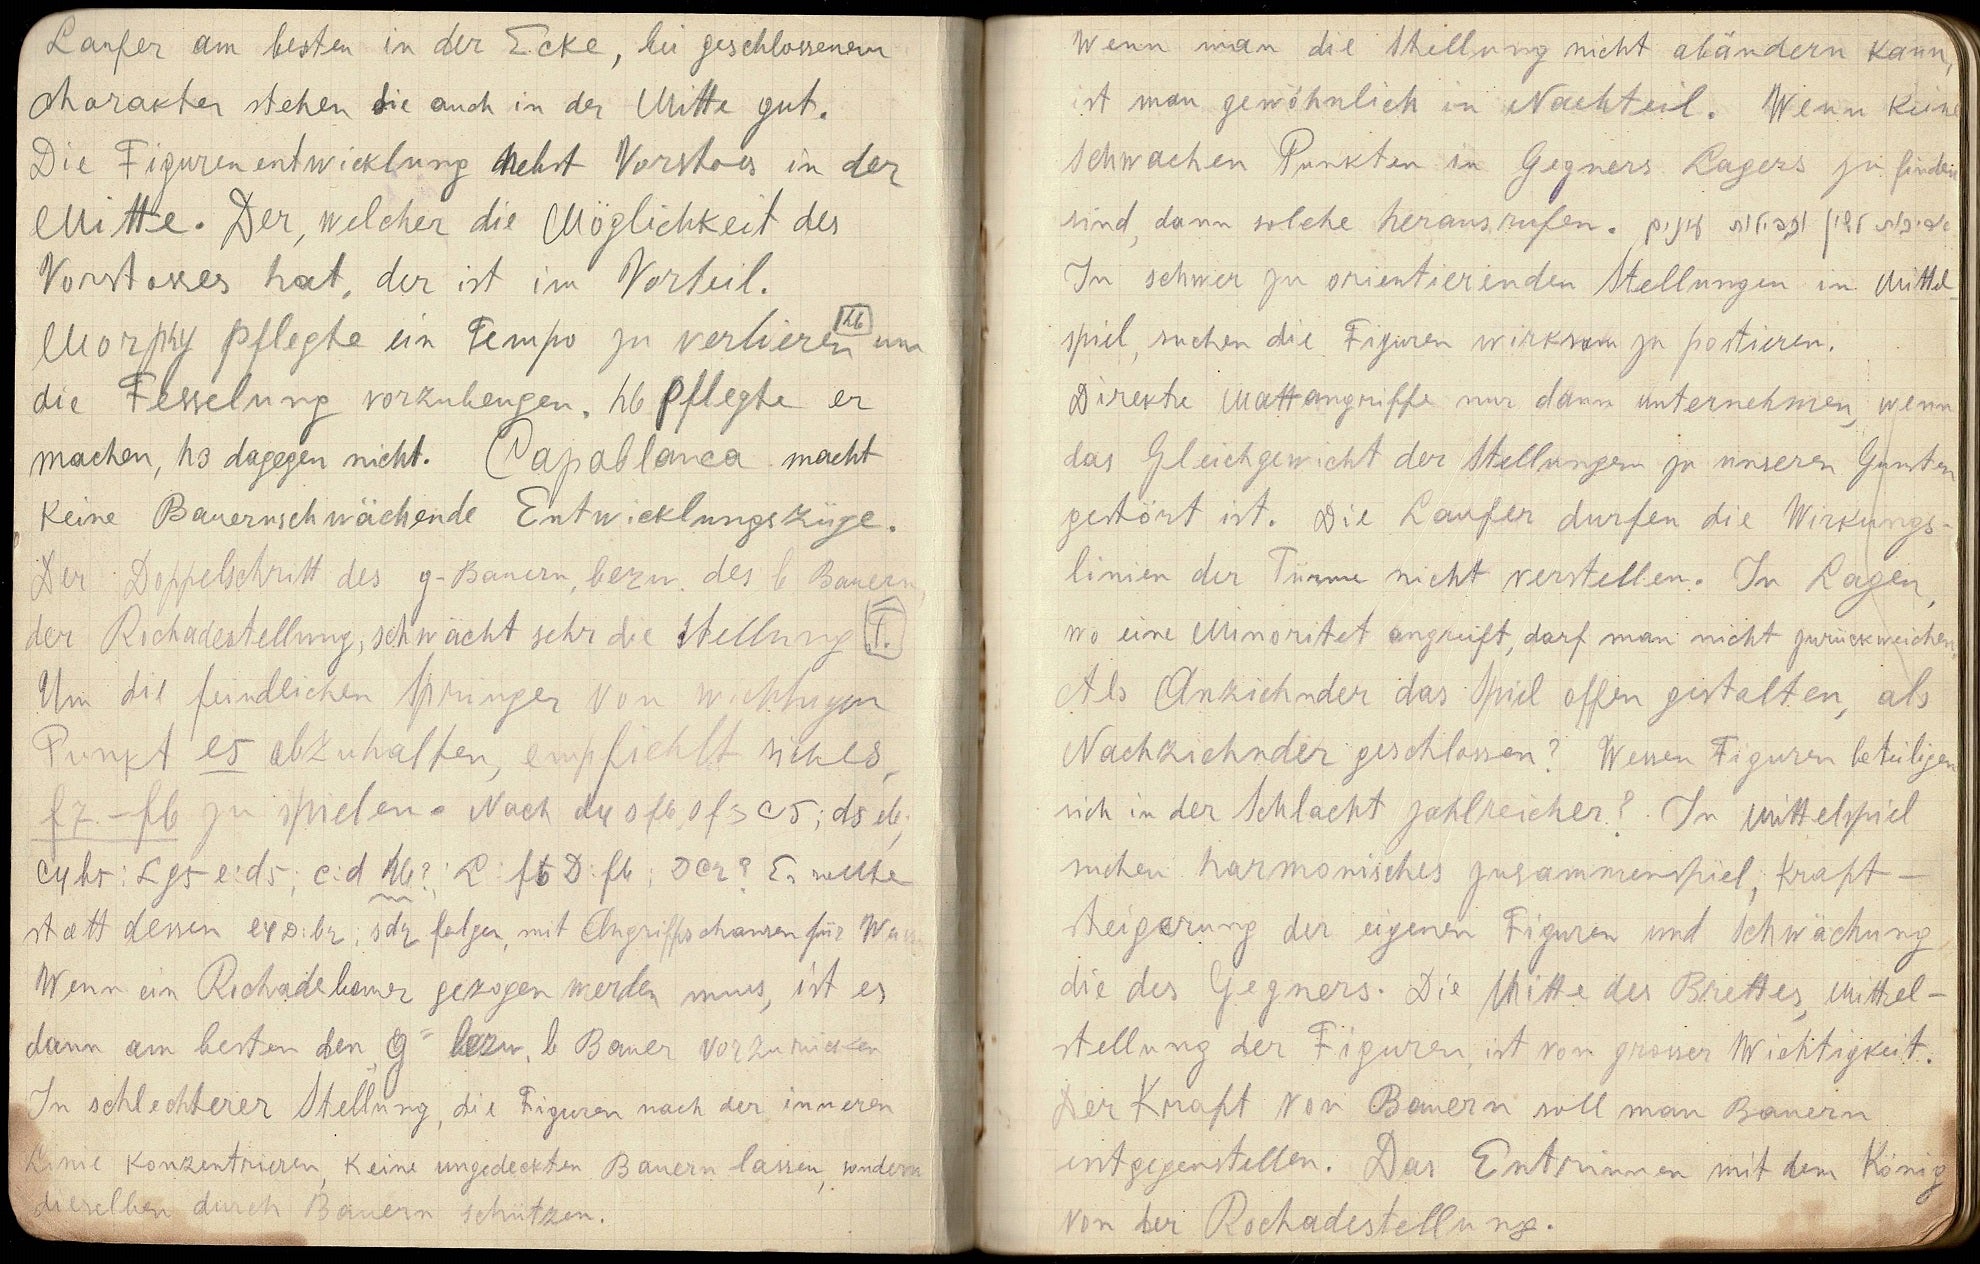 Laufer am besten in der Ecke, bei geschlossenem
charakter stehen sie auch in der Mitte gut.
Die Figurenentwicklung nebst Vorstoss in der
Mitte. Der, welcher die Möglichkeit des
Vorstosses hat, der ist im Vorteil.
h6
Morphy pflegte ein Tempo zu verlieren um
die Fesselung vorzubeugen. h6 pflegte er
machen, h3 dagegen nicht. Capablanca macht
keine Bauernschwächende Entwicklungszüge.
Der Doppelschritt des g-Bauern, bezw. des b Bauern,
der Rochadestellung, schwächt sehr die Stellung
Um die feindlichen Springer von wichtigen
Punkt e5 abzuhalten, empfiehlt sich es,
f7-f6 zu spielen. Nach d4 Sf6, Sf3 c5; d5 d6;
c4 b5; Lg5 e:d5; c:d h6?; L:f6 D:f6; Dc2? Es sollte
statt dessen e4 D:b2; Sd2 folgen, mit Angriffschancen für
Wenn ein Rochadebauer gezogen werden muss, ist es
dann am besten den g= bezw. b Bauer vorzurücken
In schlechterer Stellung, die Figuren nach der inneren
Linie konzentrieren, keine ungedeckten Bauern lassen, sondern
dieselben durch Bauern schützen.
Wenn man die Stellung nicht abändern kann,
ist man gewöhnlich in Nachteil. Wenn keine
schwachen Punkten in Gegners Lagers zu finden
sind, dann solche herausrufen.
In schwer zu orientierenden Stellungen in Mittel-
spiel, suchen die Figuren wirksam zu postieren.
Direkte Mattangriffe nur dann unternehmen, wenn
das Gleichgewicht der Stellungen zu unseren Gunsten
gestört ist. Die Laufer durfen die Wirkungs-
linien der Türme nicht verstellen. In Lagen,
wo eine Minoritet angreift, darf man nicht zurückweichen.
Als Anziehnder das Spiel offen gestalten, als
Nachziehnder geschlossen? Wessen Figuren beteiligen
sich in der Schlacht zahlreicher? In Mittelspiel
suchen harmonisches zusammenspiel, Kraft-
steigerung der eigenen Figuren und Schwächung,
die des Gegners. Die Mitte des Brettes, Mittel-
stellung der Figuren, ist von grosser Wichtigkeit.
Der Kraft von Bauern soll man Bauern
entgegenstellen. Das Entrinnen mit dem König
von der Rochadestellung.